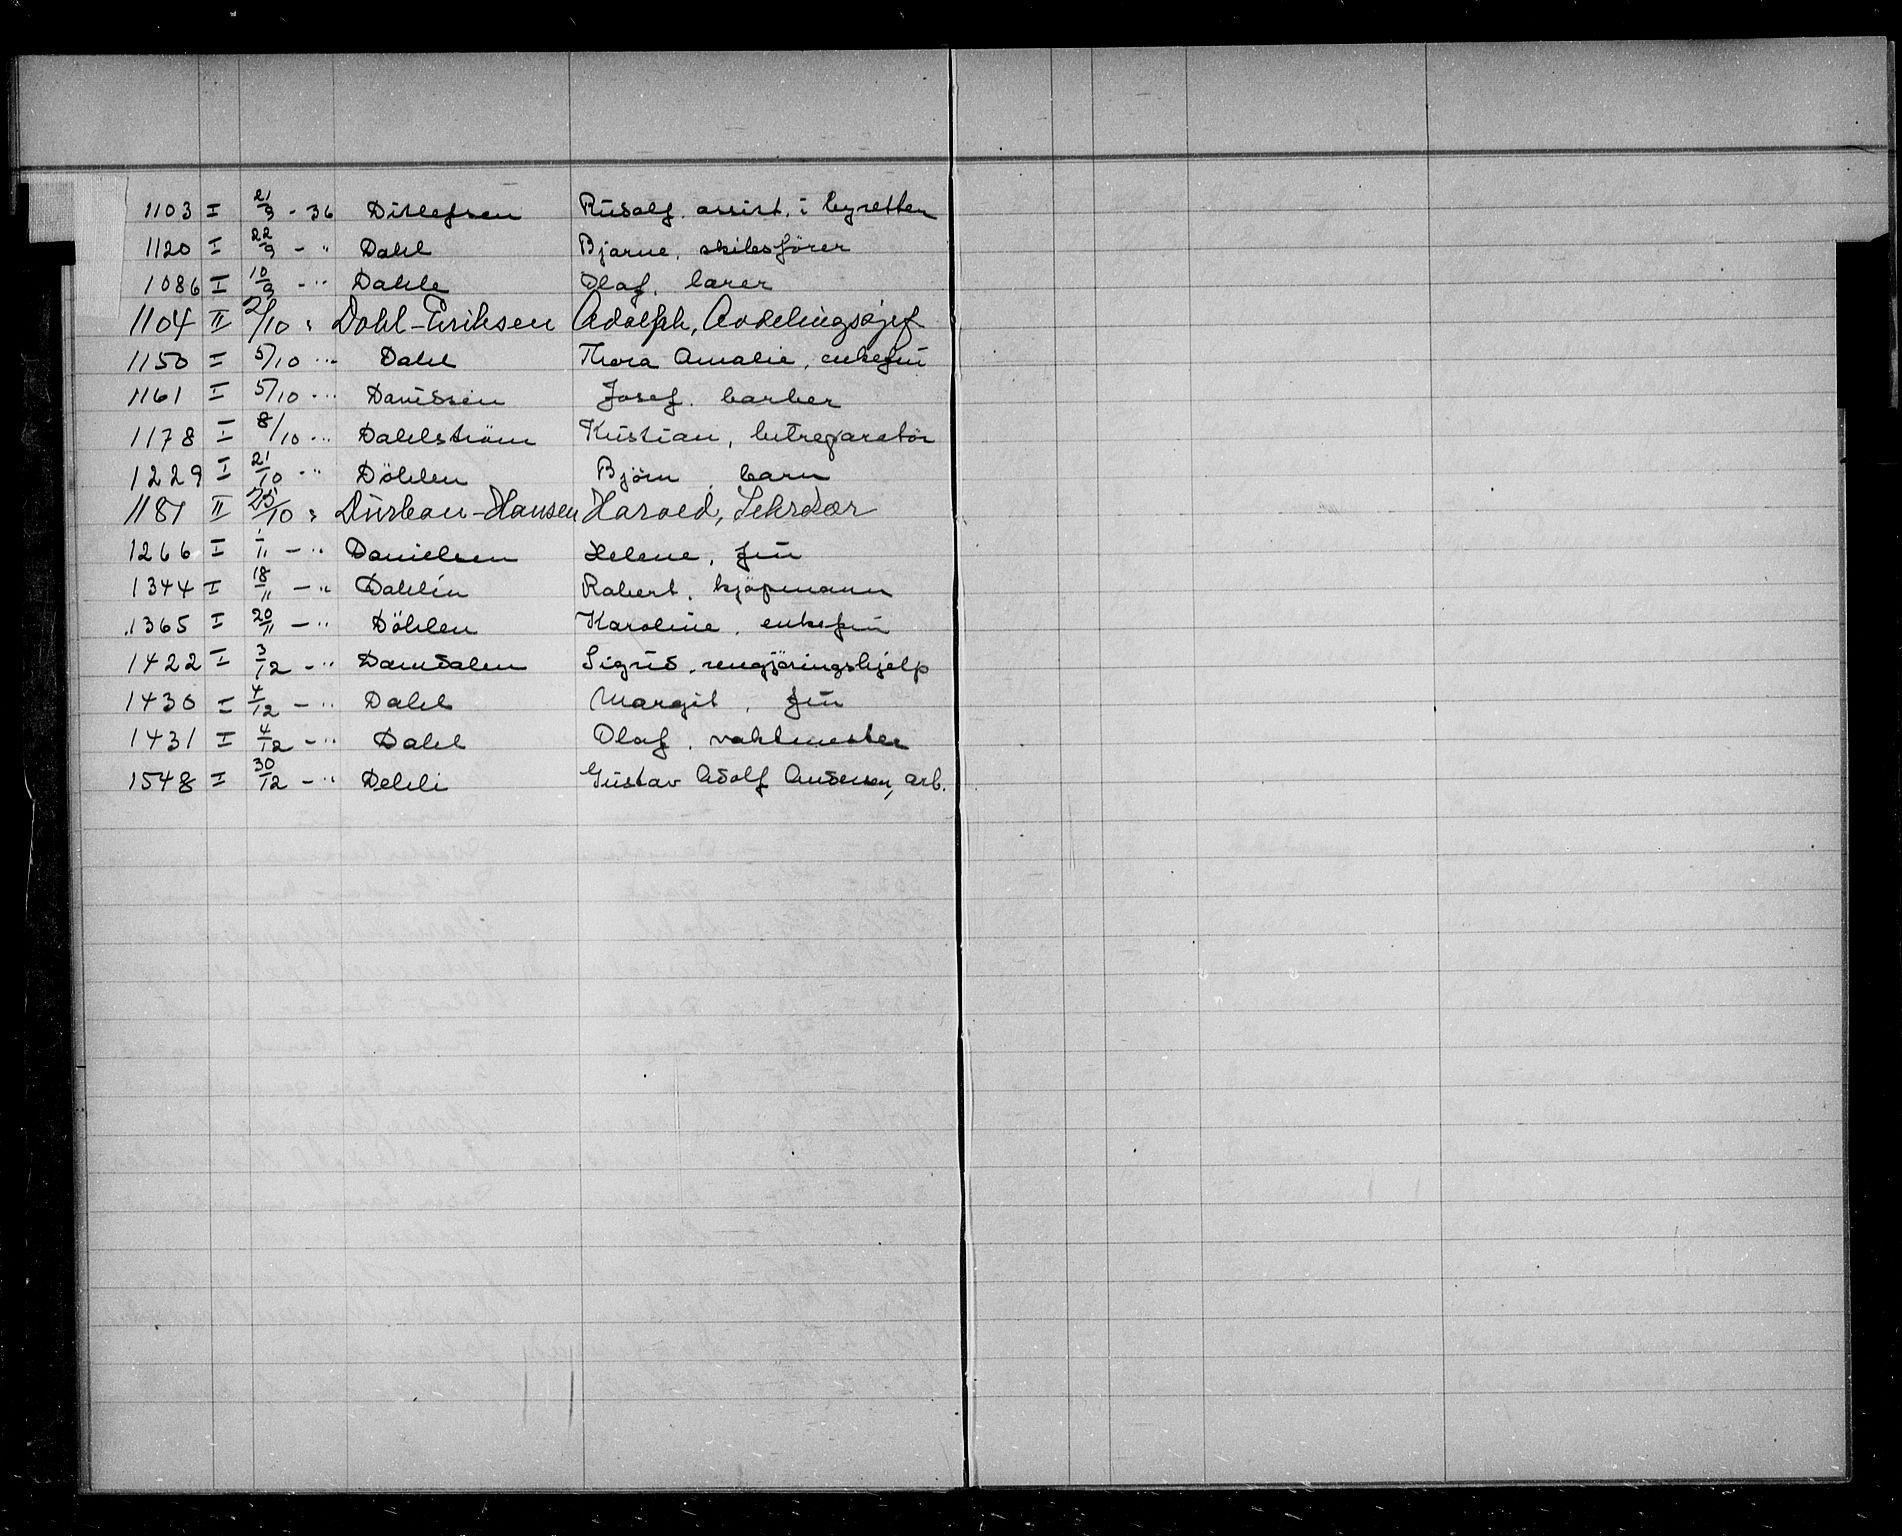 1103 I 21/9 - 36 Ditlefsen Rudolf. assist. i byretten
1120 I 22/9 - " Dahl Bjarne, skibsfører
1086 I 10/9 - " Dahle Olaf. lærer
1104 II 2/10 " Dahl-Eriksen Adolph, Avdelingssjef
1150 I 5/10 - " Dahl Thora Amalie, enkefru
1161 I 5/10 - " Davidsen Josef. barber
1178 I 8/10 - " Dahlström Kristian, butreparatør
1229 I 21/10 - " Döhlen Björn, barn
1181 II 25/10 " Durban-Hansen Harald,
1266 I 1/11 - " Danielsen Helene, fru
1344 I 18/11 - " Dahlin Robert. kjöpmann
1365 I 20/11 - " Döhlen Karoline, enkefru
1422 I 3/12 - " Damdalen Sigrid, rengjöringshjelp
1430 I 4/12 - " Dahl Margit, fru
1431 I 4/12 - " Dahl Olaf. vaktmester
1548 I 30/12 - " Dehli Gustav Adolf Andersen, arb.